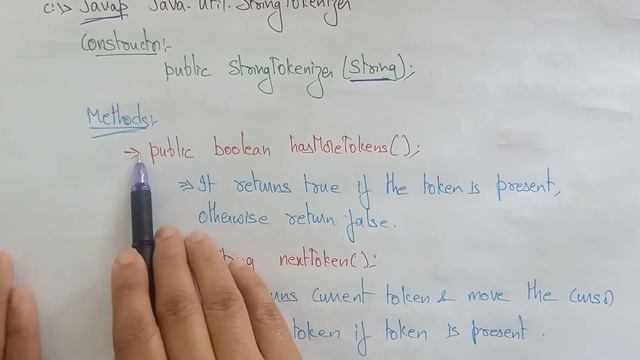 c:\> Javap Java.util.StringTokenizer
Constructor:-
public StringTokenizer(String);
Methods:-
→ public boolean hasMoreTokens();
⇒ It returns true if the token is present,
otherwise return false.
nextToken():
current token & move the cursor
token if token is present.